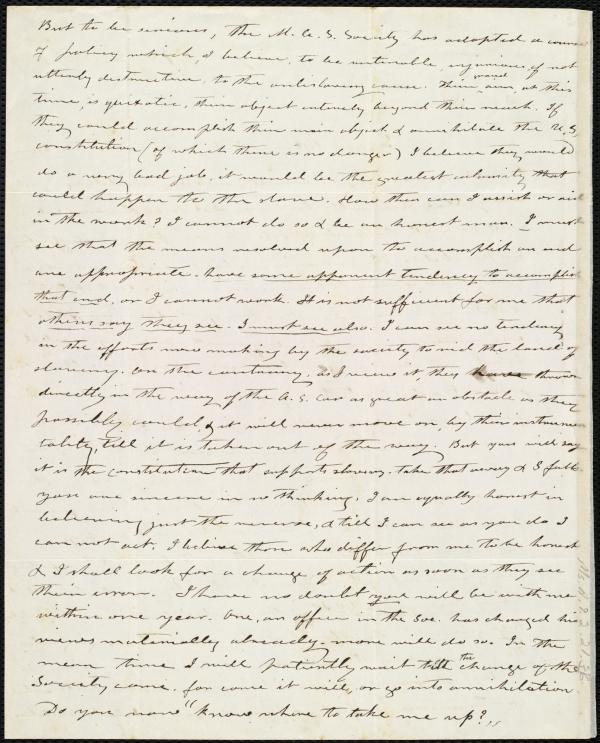 But to be serious, the M. A. S. Society has adopted a course
of policy which, I believe, to be untenable, injurious, if not
utterly destructive, to the antislavery cause. Their grand aim, at this
time, is quixotic, their object entirely beyond their reach. If
they could accomplish their main object & annihilate the U.S.
constitution (of which there is no danger) I believe they would
do a very bad job, it would be the greatest calamity that
could happen to the slave. How then can I assist or aid
in the work? I cannot do so & be an honest man. I must
see that the means resolved upon to accomplish an end
are appropriate. have some apparent tendency to accomplish
that end, or I cannot work. It is not sufficient for me that
others say they see. I must see also. I can see no tendency
in the efforts now making by the society to rid the land of
slavery. On the contrary, as I view it, they have thrown
directly in the way of the A. S. Car as great an obstacle as they
possibly could, & it will never move on, by their instrumen
tality, till it is taken out of the way. But you will say
it is the constitution that supports slavery. take that away & I fall.
you are sincere in so thinking. I am equally honest in
believing just the reverse, & till I can see as you do I
can not act. I believe those who differ from me to be honest
& I shall look for a change of action as soon as they see
their error. I have no doubt you will be with me
within one year. One, an officer in the Soc. has changed his
views materially already. more will do so. In the
mean time I will patiently wait till the change of the
Society come. for come it will, or go into annihilation
Do you now "know where to take me up?"
Ms. A. 9. 2. 21. 38